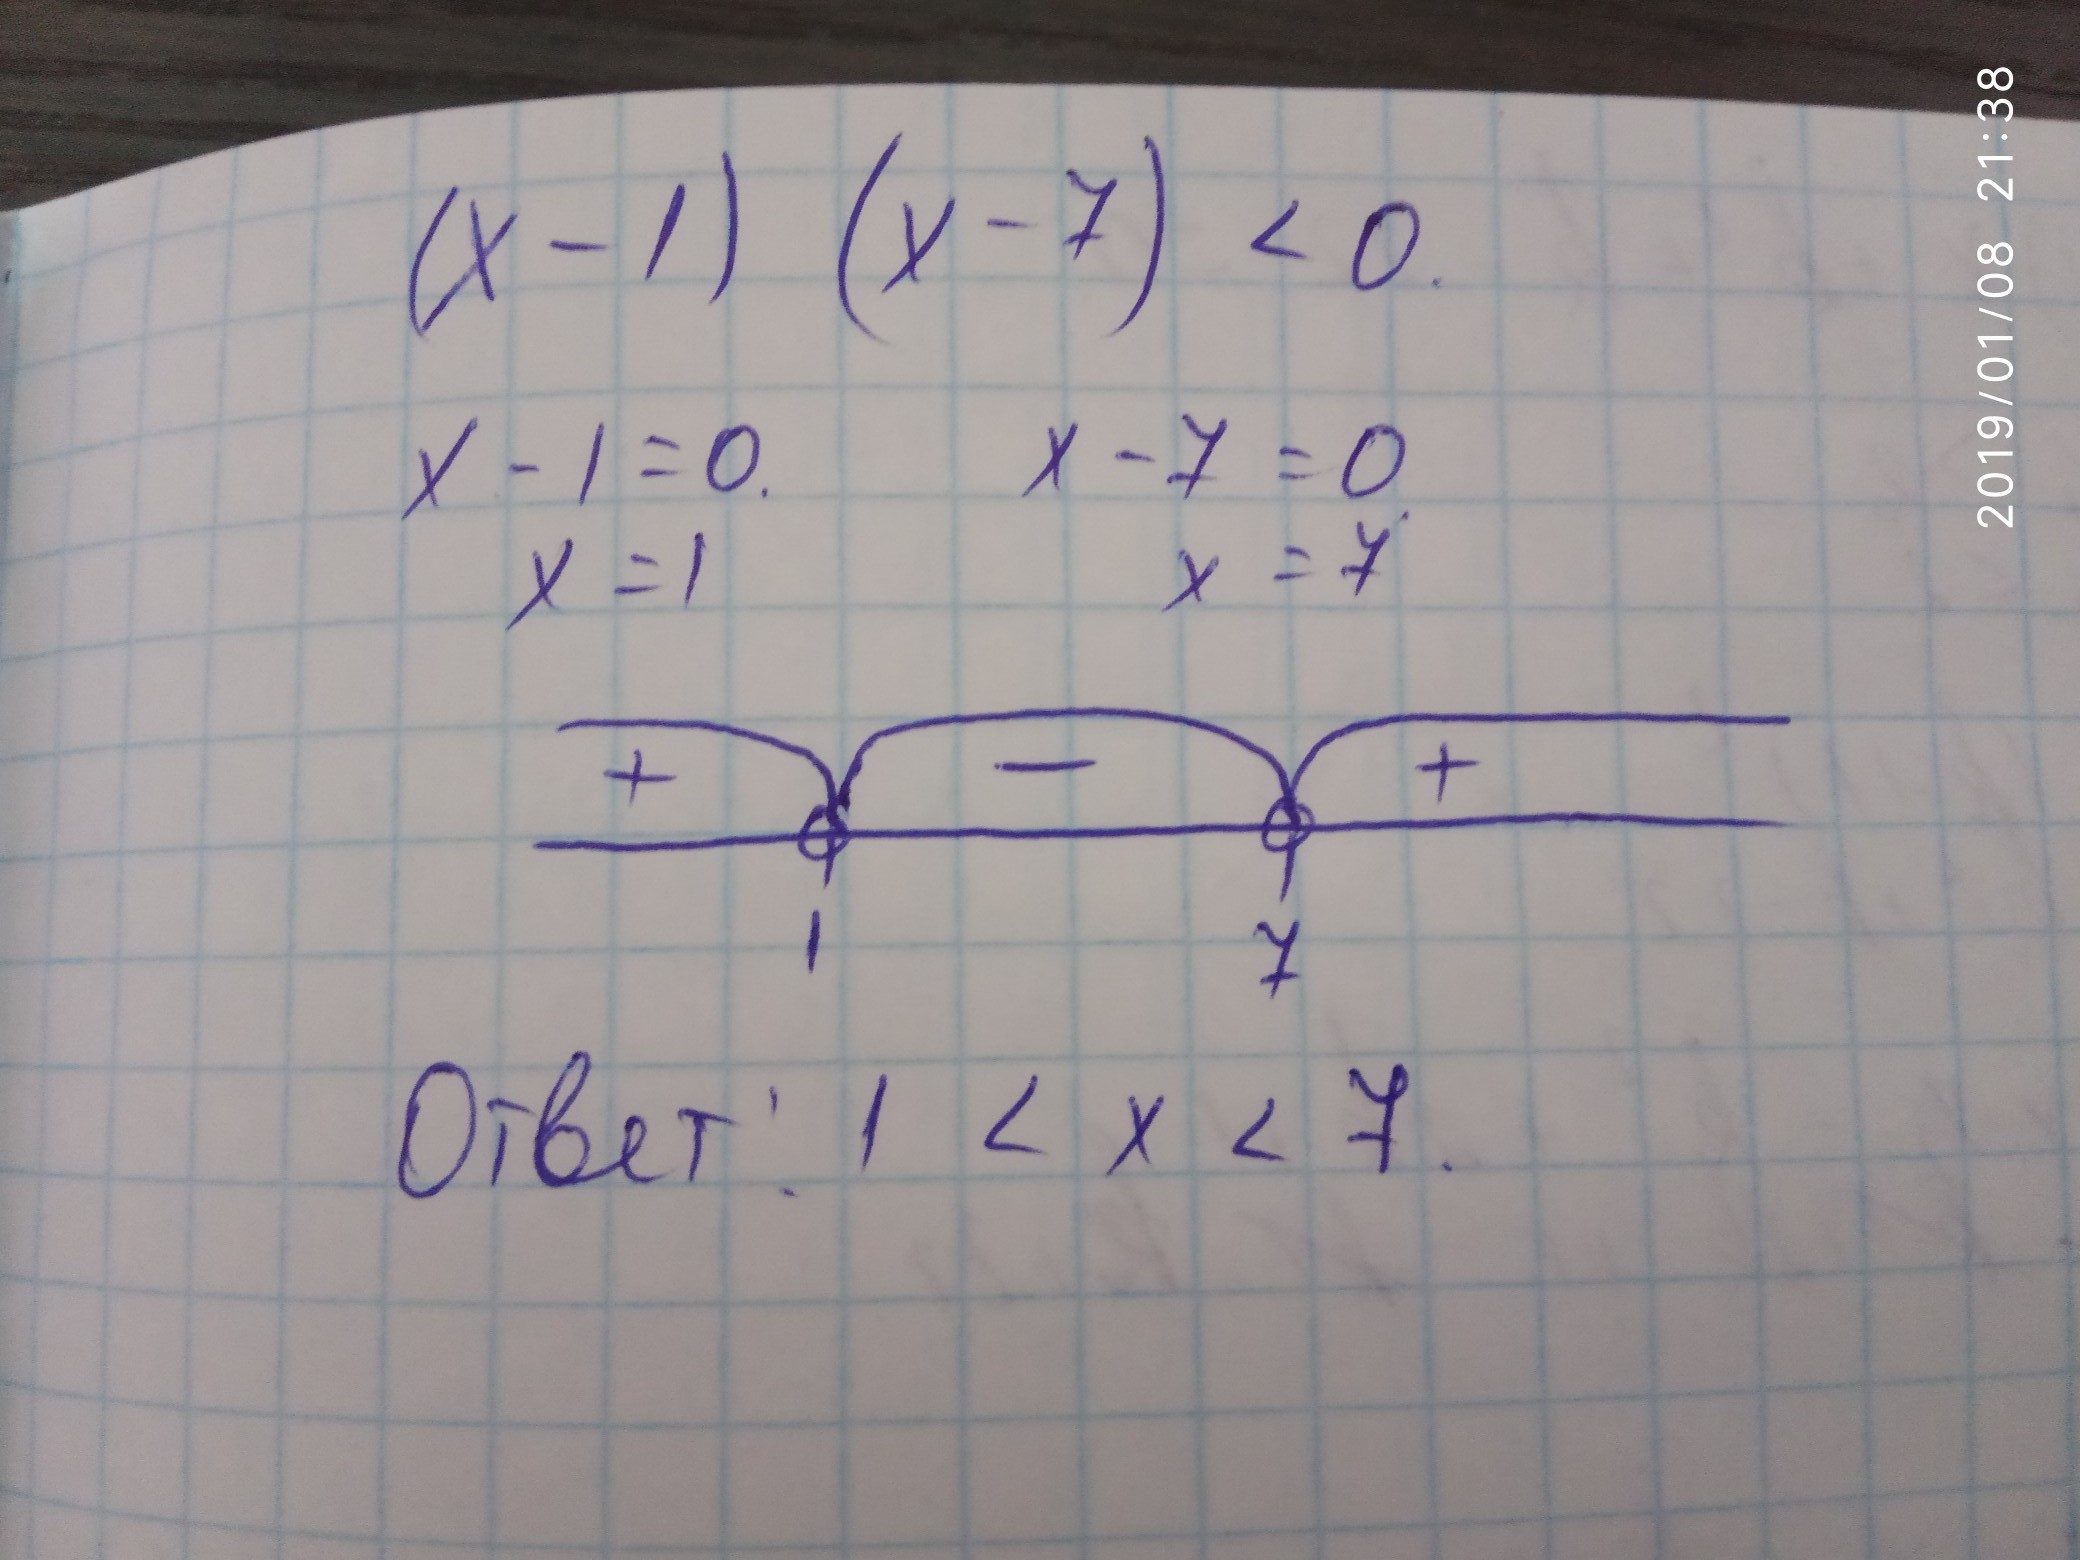 (x - 1) (x - 7) < 0.
x - 1 = 0. x - 7 = 0.
x = 1 x = 7
+ — +
1 7
Ответ: 1 < x < 7.
2019/01/08 21:38